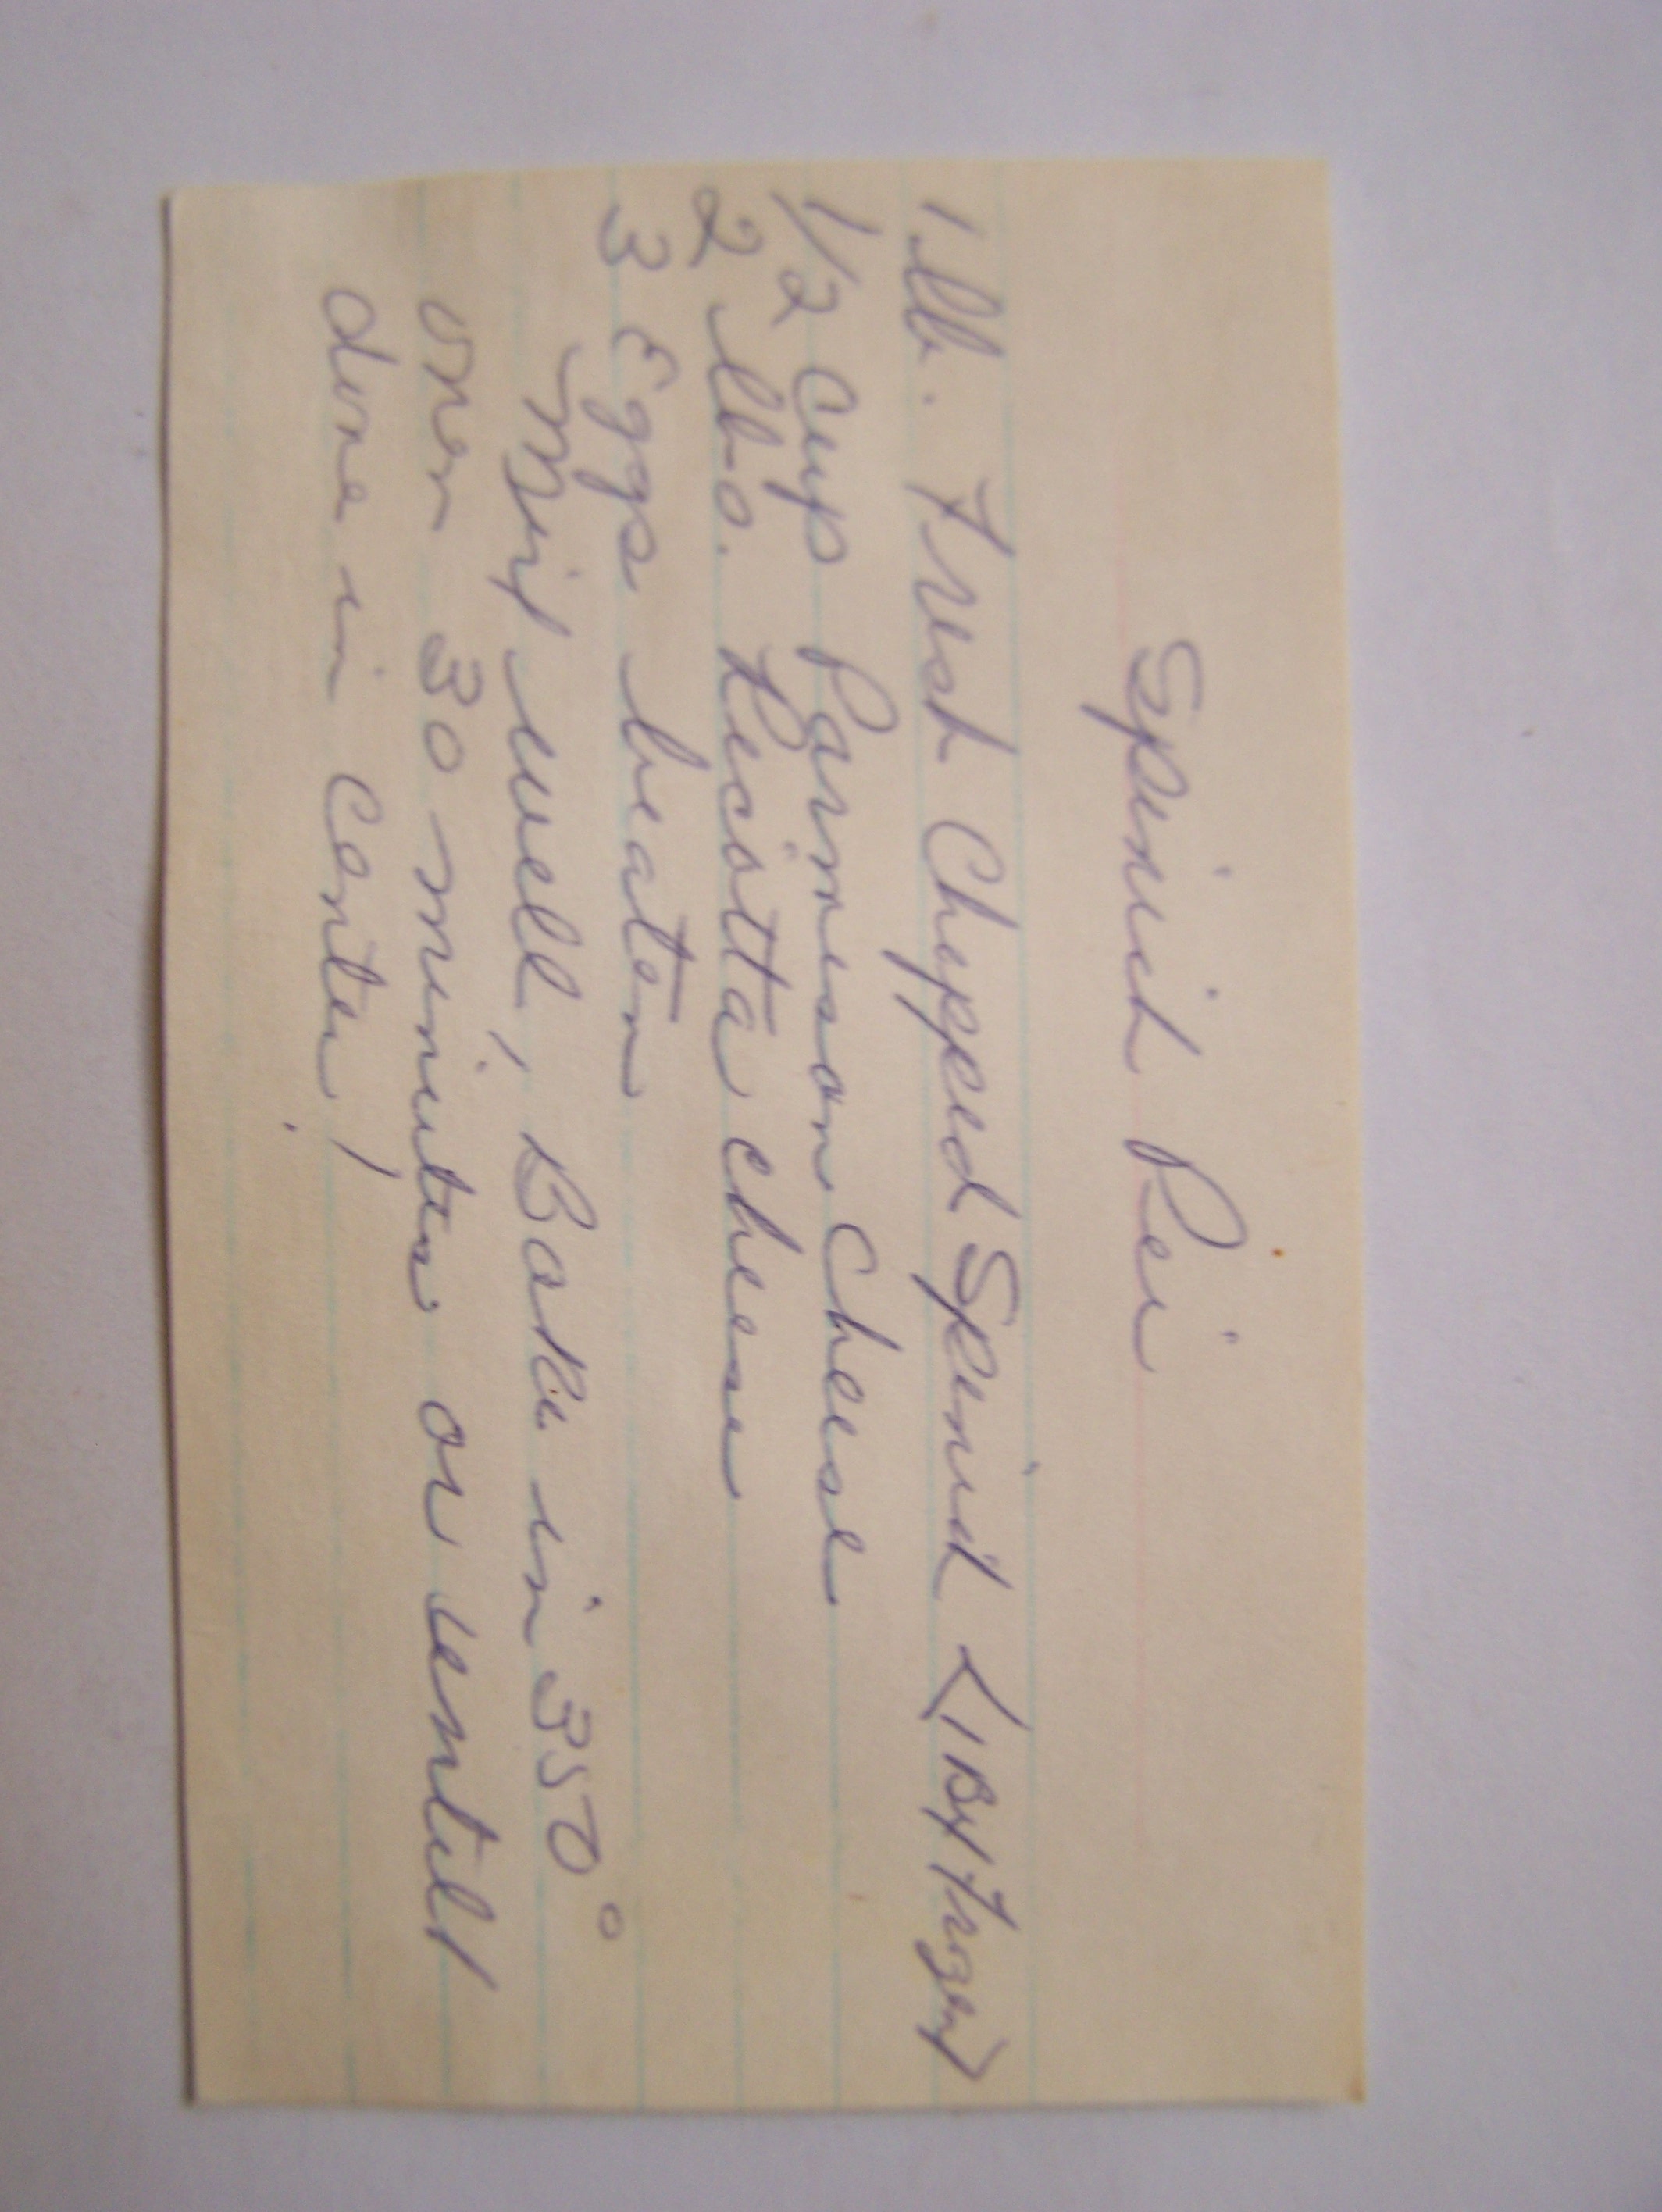 Spinich Pie
1 lb. Fresh Chopped Spinich
1/2 cup Parmeson Cheese
2 lbs. Ricotta cheese
3 Eggs beaten
Mix well, Bake in 350°
oven 30 minutes or untill
done in center!